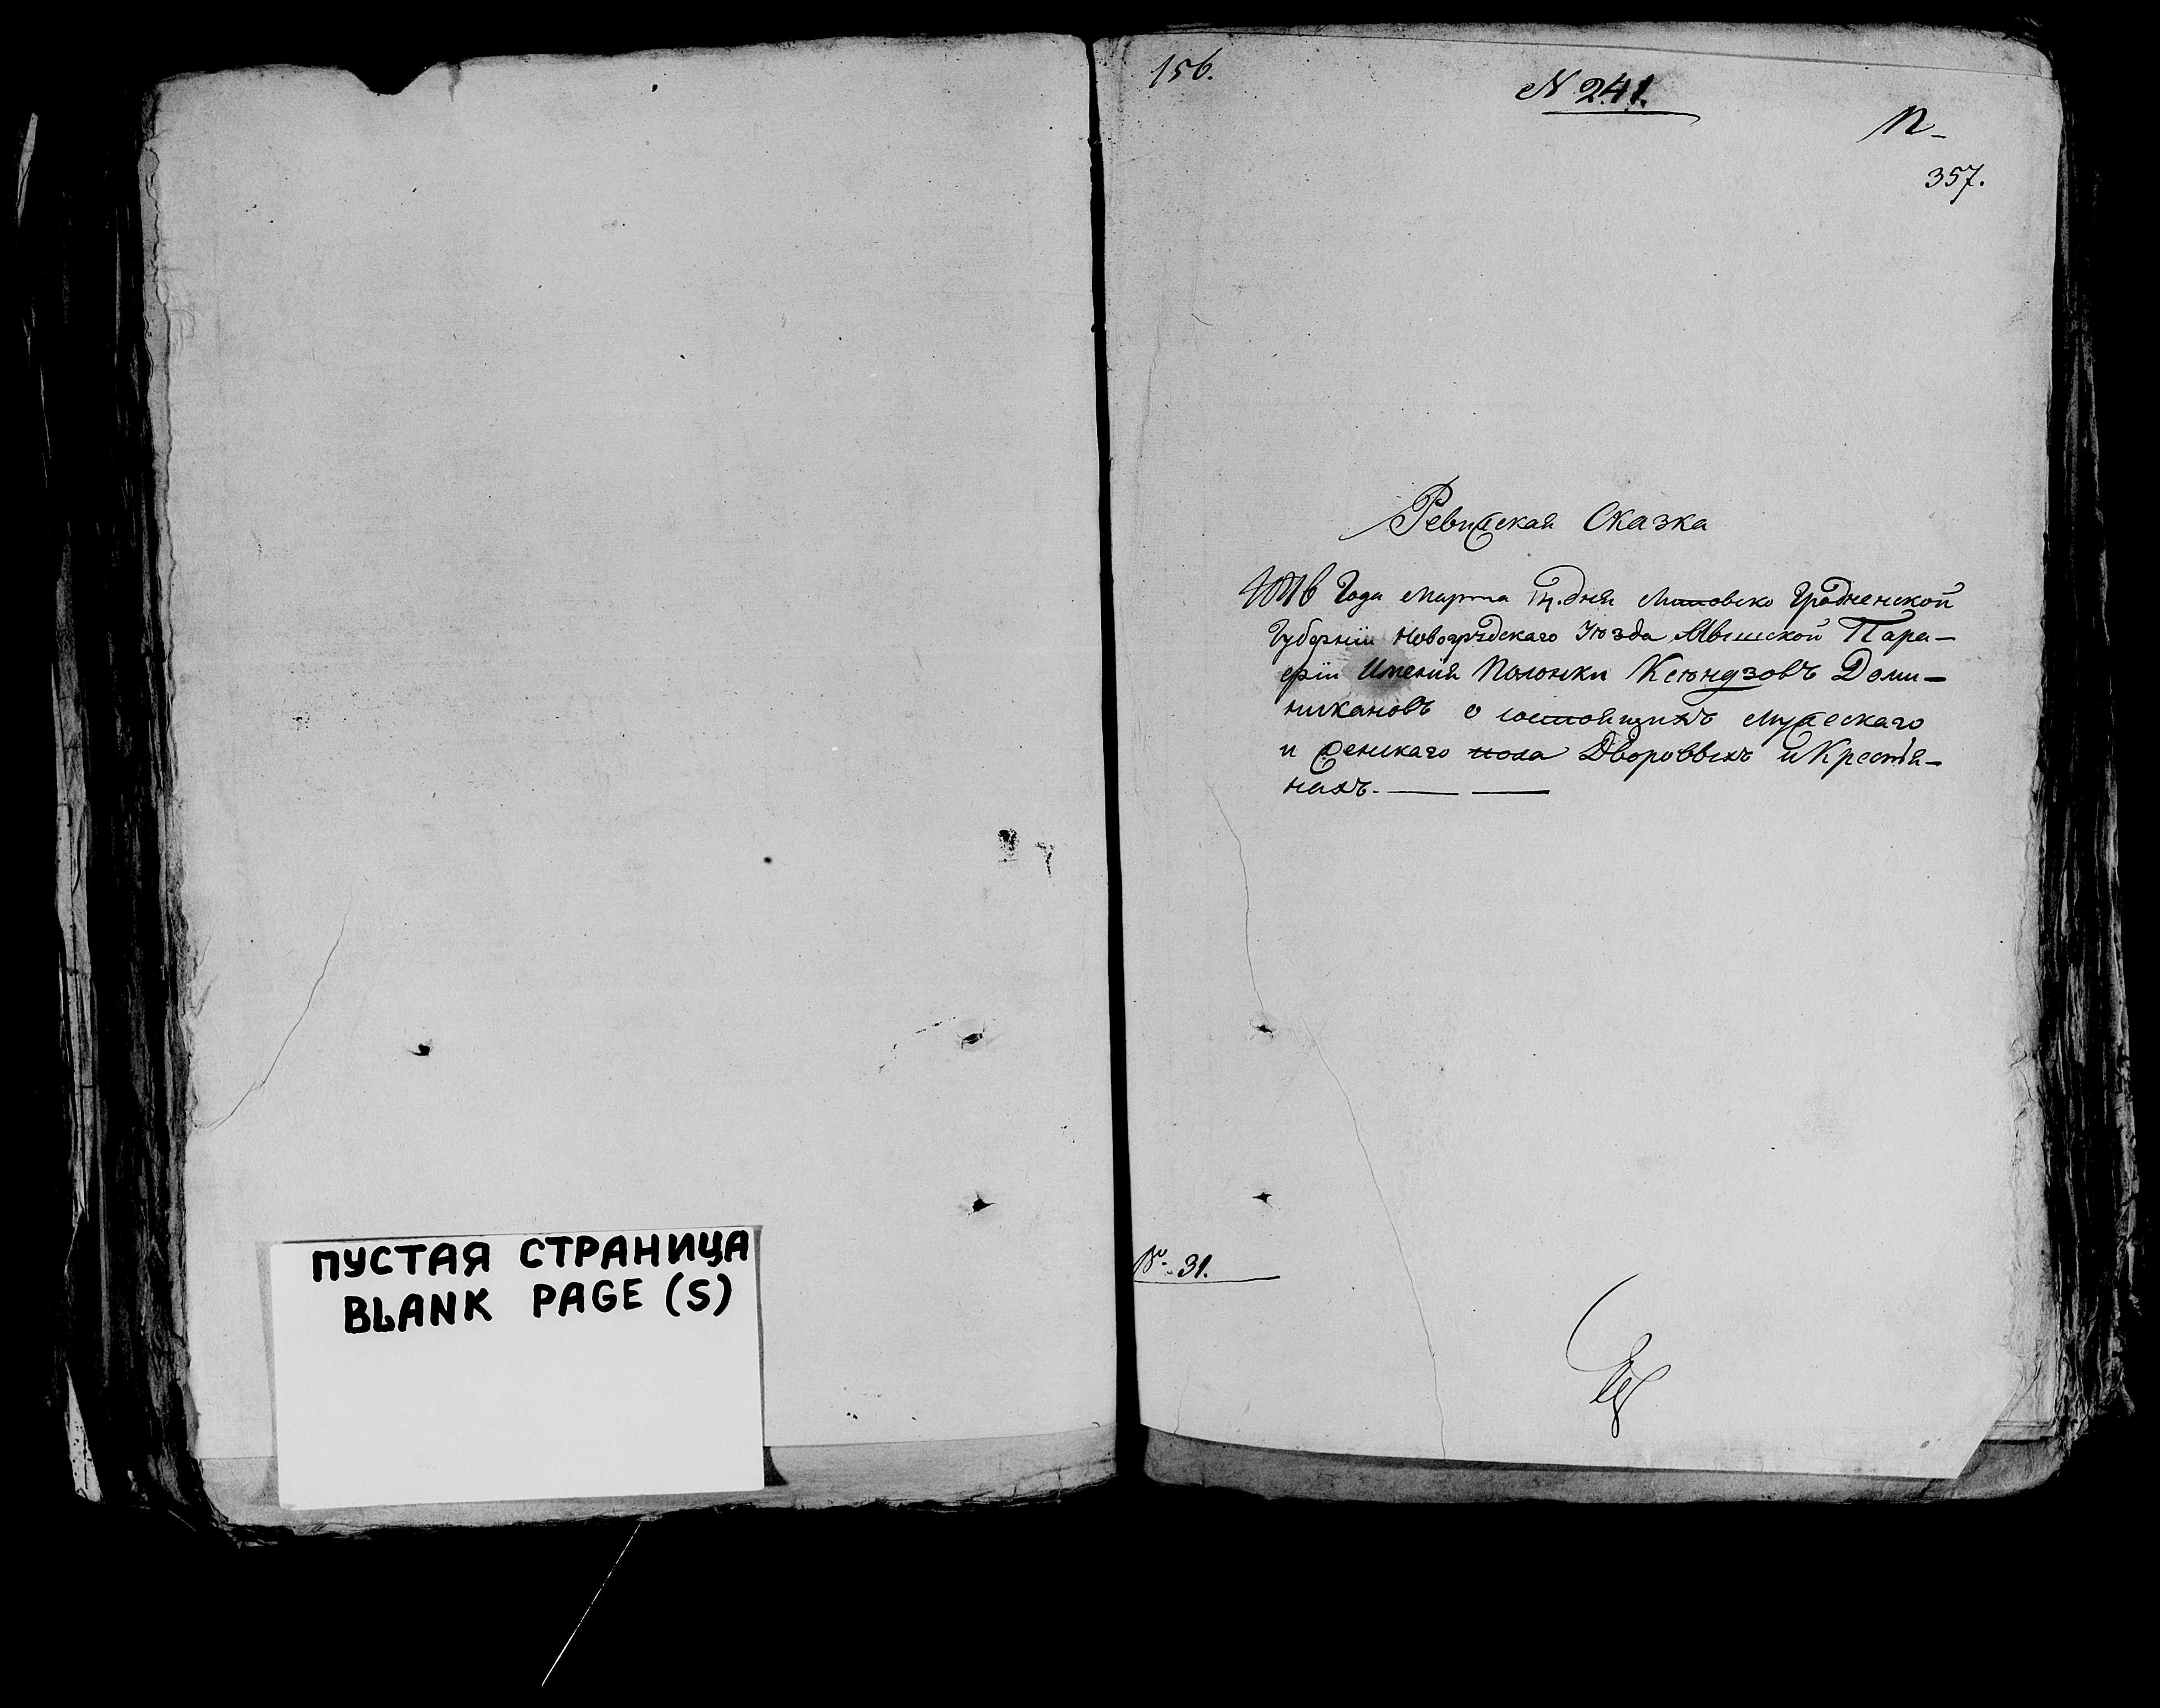 ПУСТАЯ СТРАНИЦА
BLANK PAGE (S)
156.
N 241.
357.
Ревижская Сказка
1816 Года Марта дня Литовско Гродненской
Губернїи Новогрудскаго Уюзда Мышской Пара-
фїи Именїя Полонки Ксюндзовъ Доми-
никановъ о состоящихъ Мужескаго
и женскаго пола Дворовыхъ и Крестя-
нахъ.
№ 31.